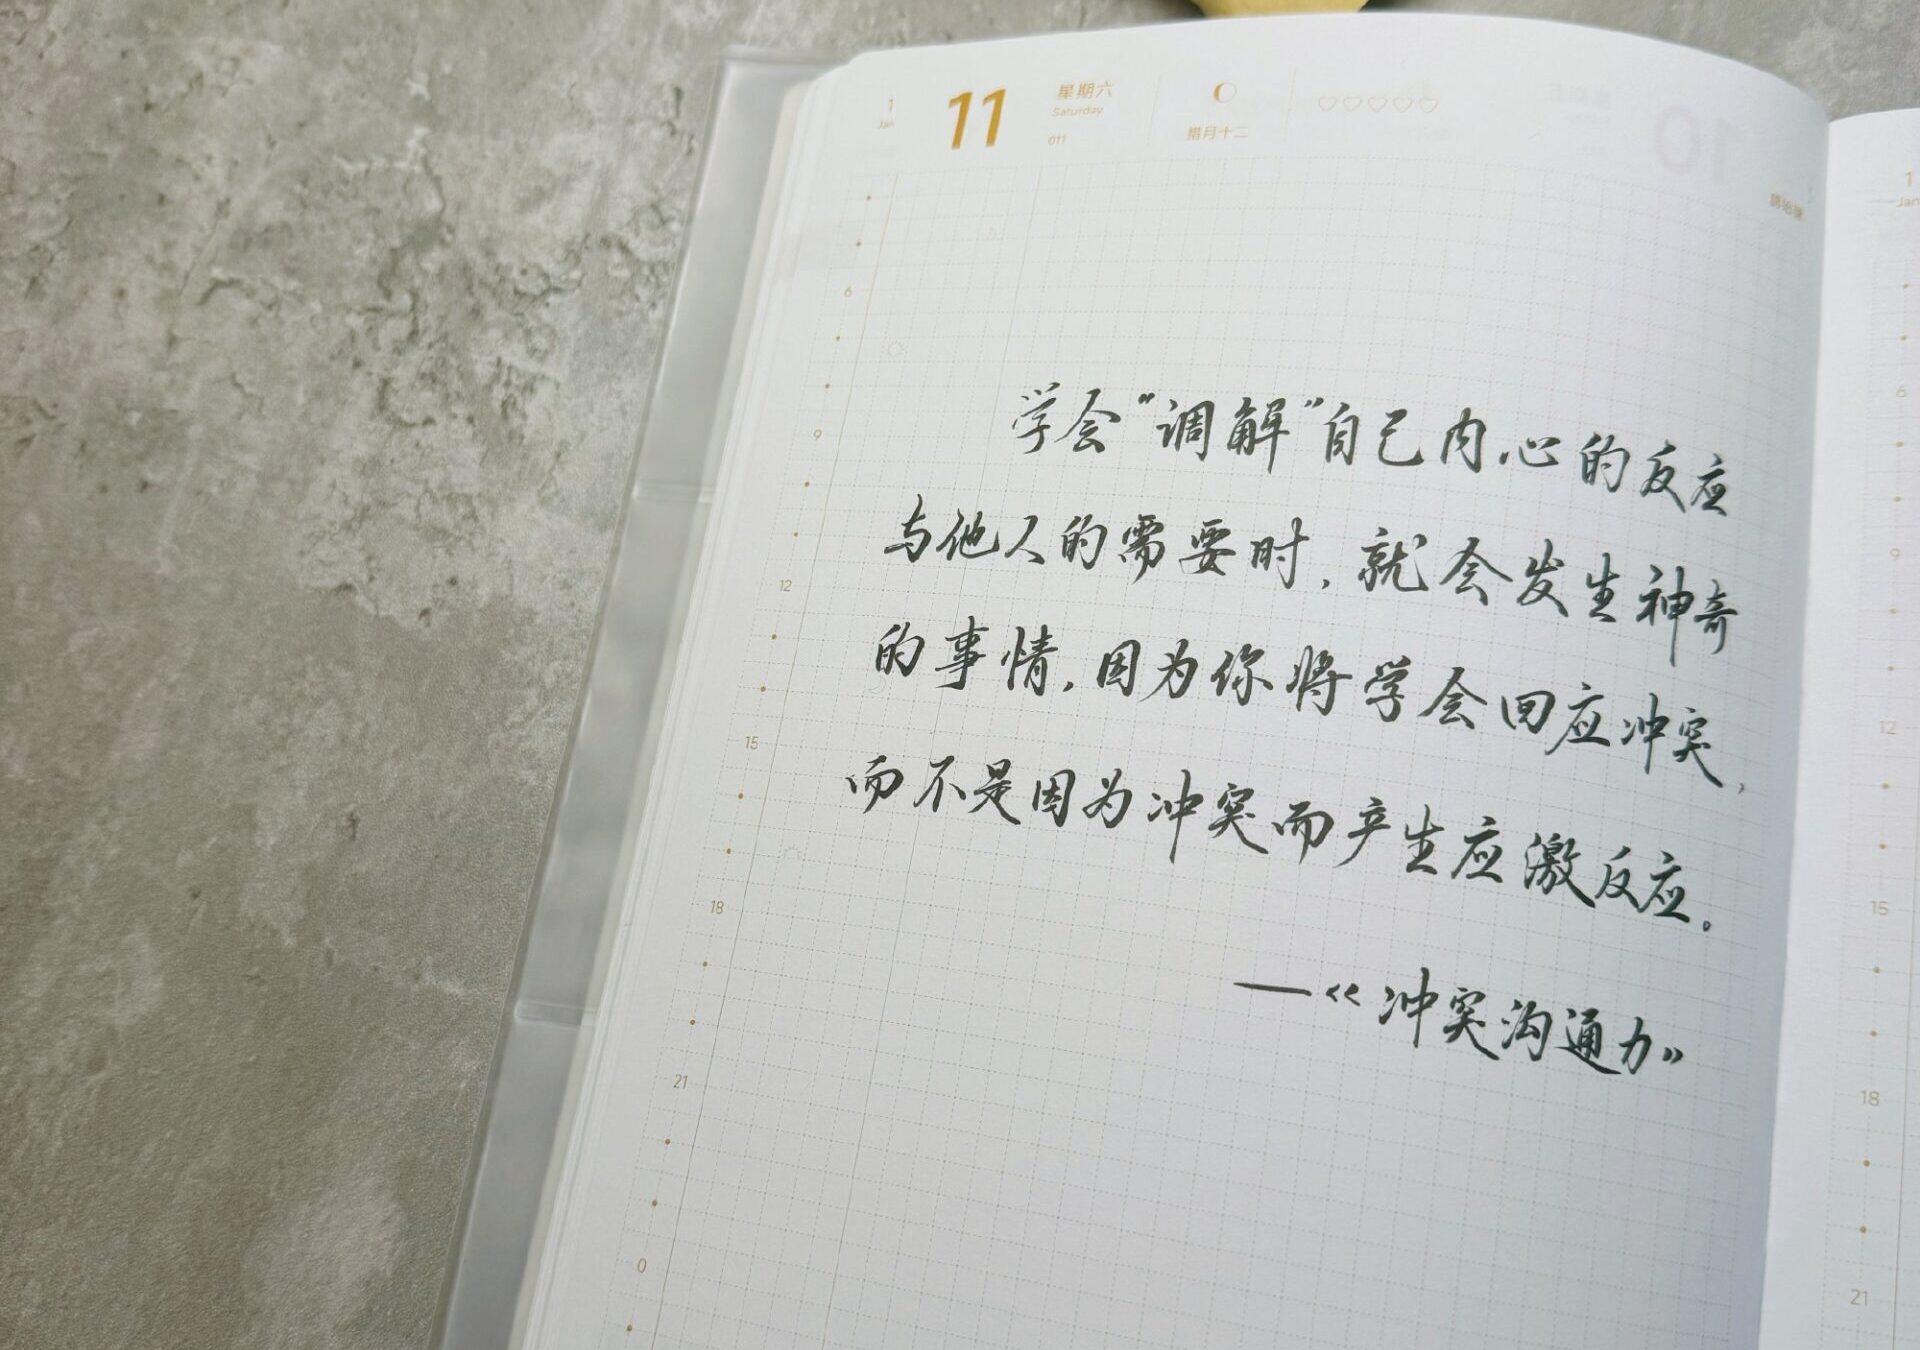 1
Jan
11
星期六
Saturday
011
腊月十二
10
学会“调解”自己内心的反应
与他人的需要时，就会发生神奇
的事情，因为你将学会回应冲突，
而不是因为冲突而产生应激反应。
—《冲突沟通力》
6
9
12
15
18
21
0
1
Jan
6
9
12
15
18
21